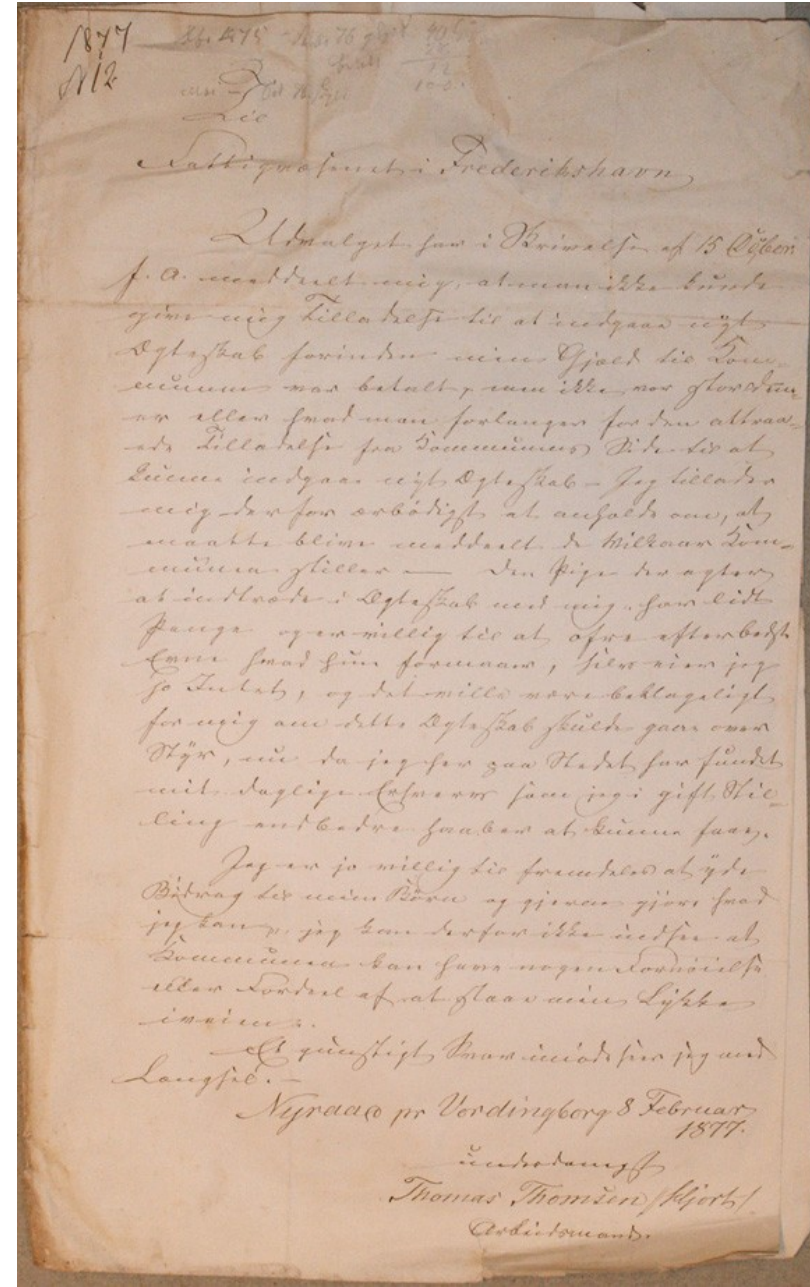 1877
N 12
Til
Fattigvæsenet i Frederikshavn
Udvalget har i Skrivelse af 15 Octber
f. A. meddeelt mig, at man ikke kunde
give mig Tilladelse til at indgaae nyt
Ægteskab forinden min Gjæld til Kom-
munen var betalt, men ikke hvor stor den
er eller hvad man forlanger for den attraa-
ede Tilladelse fra Kommunens Side til at
kunne indgaae nyt Ægteskab – Jeg tillader
mig derfor ærbødigst at anholde om, at
maatte blive meddeelt de Vilkaar Kom-
munen stiller — Den Pige der agter
at indtræde i Ægteskab med mig, har lidt
Penge og er villig til at ofre efter bedste
Evne hvad hun formaaer, selv eier jeg
jo Intet, og det vilde være beklageligt
for mig om dette Ægteskab skulde gaae over
Styr, nu da jeg her paa Stedet har fundet
mit daglige Erhverv som jeg i gift Stil-
ling end bedre haaber at kunne faae.
Jeg er jo villig til fremdeles at yde
Bidrag til mine Børn og gjerne gjøre hvad
jeg kan, jeg kan derfor ikke indsee at
Kommunen kan have nogen Fornøielse
eller Fordeel af at staae min Lykke
iveien.
Et gunstigt Svar imødeseer jeg med
Længsel. –
Nyraad pr Vordingborg 8 Februar
1877.
underdanigst
Thomas Thomsen /Hjort/
Arbeidsmand.